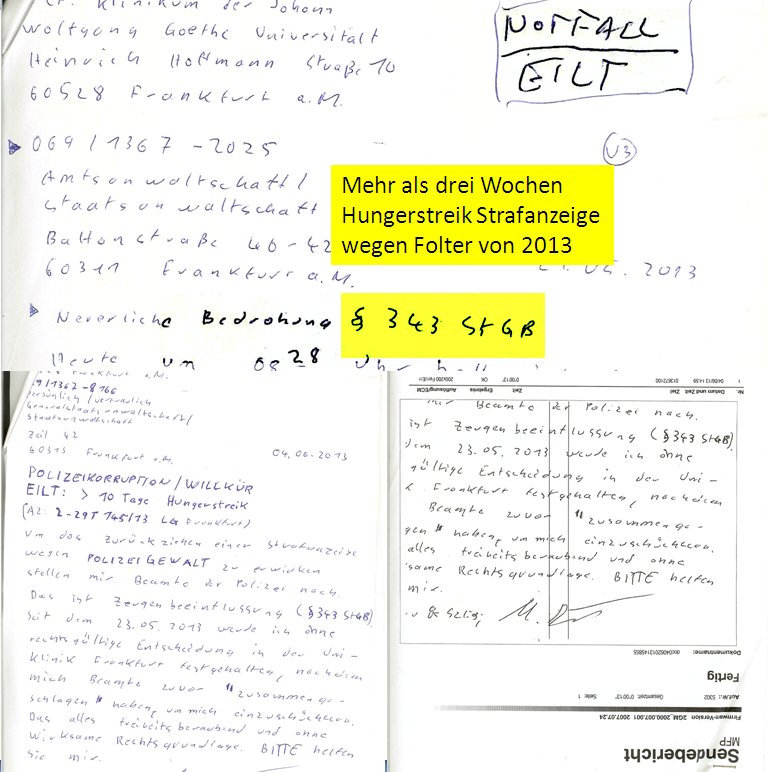 Klinikum der Johann
Wolfgang Goethe Universität
Heinrich Hoffmann Straße 10
60528 Frankfurt a.M.
NOTFALL
EILT
069/1367-2025
U3
Amtsanwaltschaft/
Staatsanwaltschaft
Mehr als drei Wochen
Hungerstreik Strafanzeige
wegen Folter von 2013
Battonstraße 40-42
60311 Frankfurt a.M.
.2013
Neuerliche Bedrohung § 343 StGB
Heute um 08 28 Uhr
Frankfurt a.M.
69/1367-8166
Persönlich/vertraulich
Generalstaatsanwaltschaft/
Staatsanwaltschaft
Zeil 42
60313 Frankfurt a.M. 04.06.2013
POLIZEIKORRUPTION/WILLKÜR
EILT: > 10 Tage Hungerstreik
(AZ: 2-29T 145/13 LG Frankfurt)
um das zurückziehen einer Strafanzeige
wegen POLIZEIGEWALT zu erwirken
stellen mir Beamte der Polizei nach.
Das ist Zeugenbeeinflussung (§343 StGB).
Seit dem 23.05.2013 werde ich ohne
rechtsgültige Entscheidung in der Uni-
klinik Frankfurt festgehalten, nachdem
mich Beamte zuvor "zusammenge-
schlagen" haben, um mich einzuschüchtern.
Das alles freiheitsberaubend und ohne
wirksame Rechtsgrundlage. BITTE helfen
Sie mir.
Nr. Datum und Zeit Ziel Zeit Ergebnis Auflösung/ECM
1 04/06/13 14:59 013672100 0°00'13" OK 200x200 Fein/EIN
mir Beamte der Polizei nach.
ist Zeugenbeeinflussung (§343 StGB).
dem 23.05.2013 werde ich ohne
gültige Entscheidung in der Uni-
k Frankfurt festgehalten, nachdem
Beamte zuvor "zusammenge-
gen" haben, um mich einzuschüchtern.
alles freiheitsberaubend und ohne
same Rechtsgrundlage. BITTE helfen
mir.
Dokumentname: doc04062013145855
Fertig
Auf.Nr.: 5302 Gesamtzeit: 0°00'13" Seite: 1
Firmware-Version 2GM_2000.007.001 2007.07.24
MFP
Sendebericht